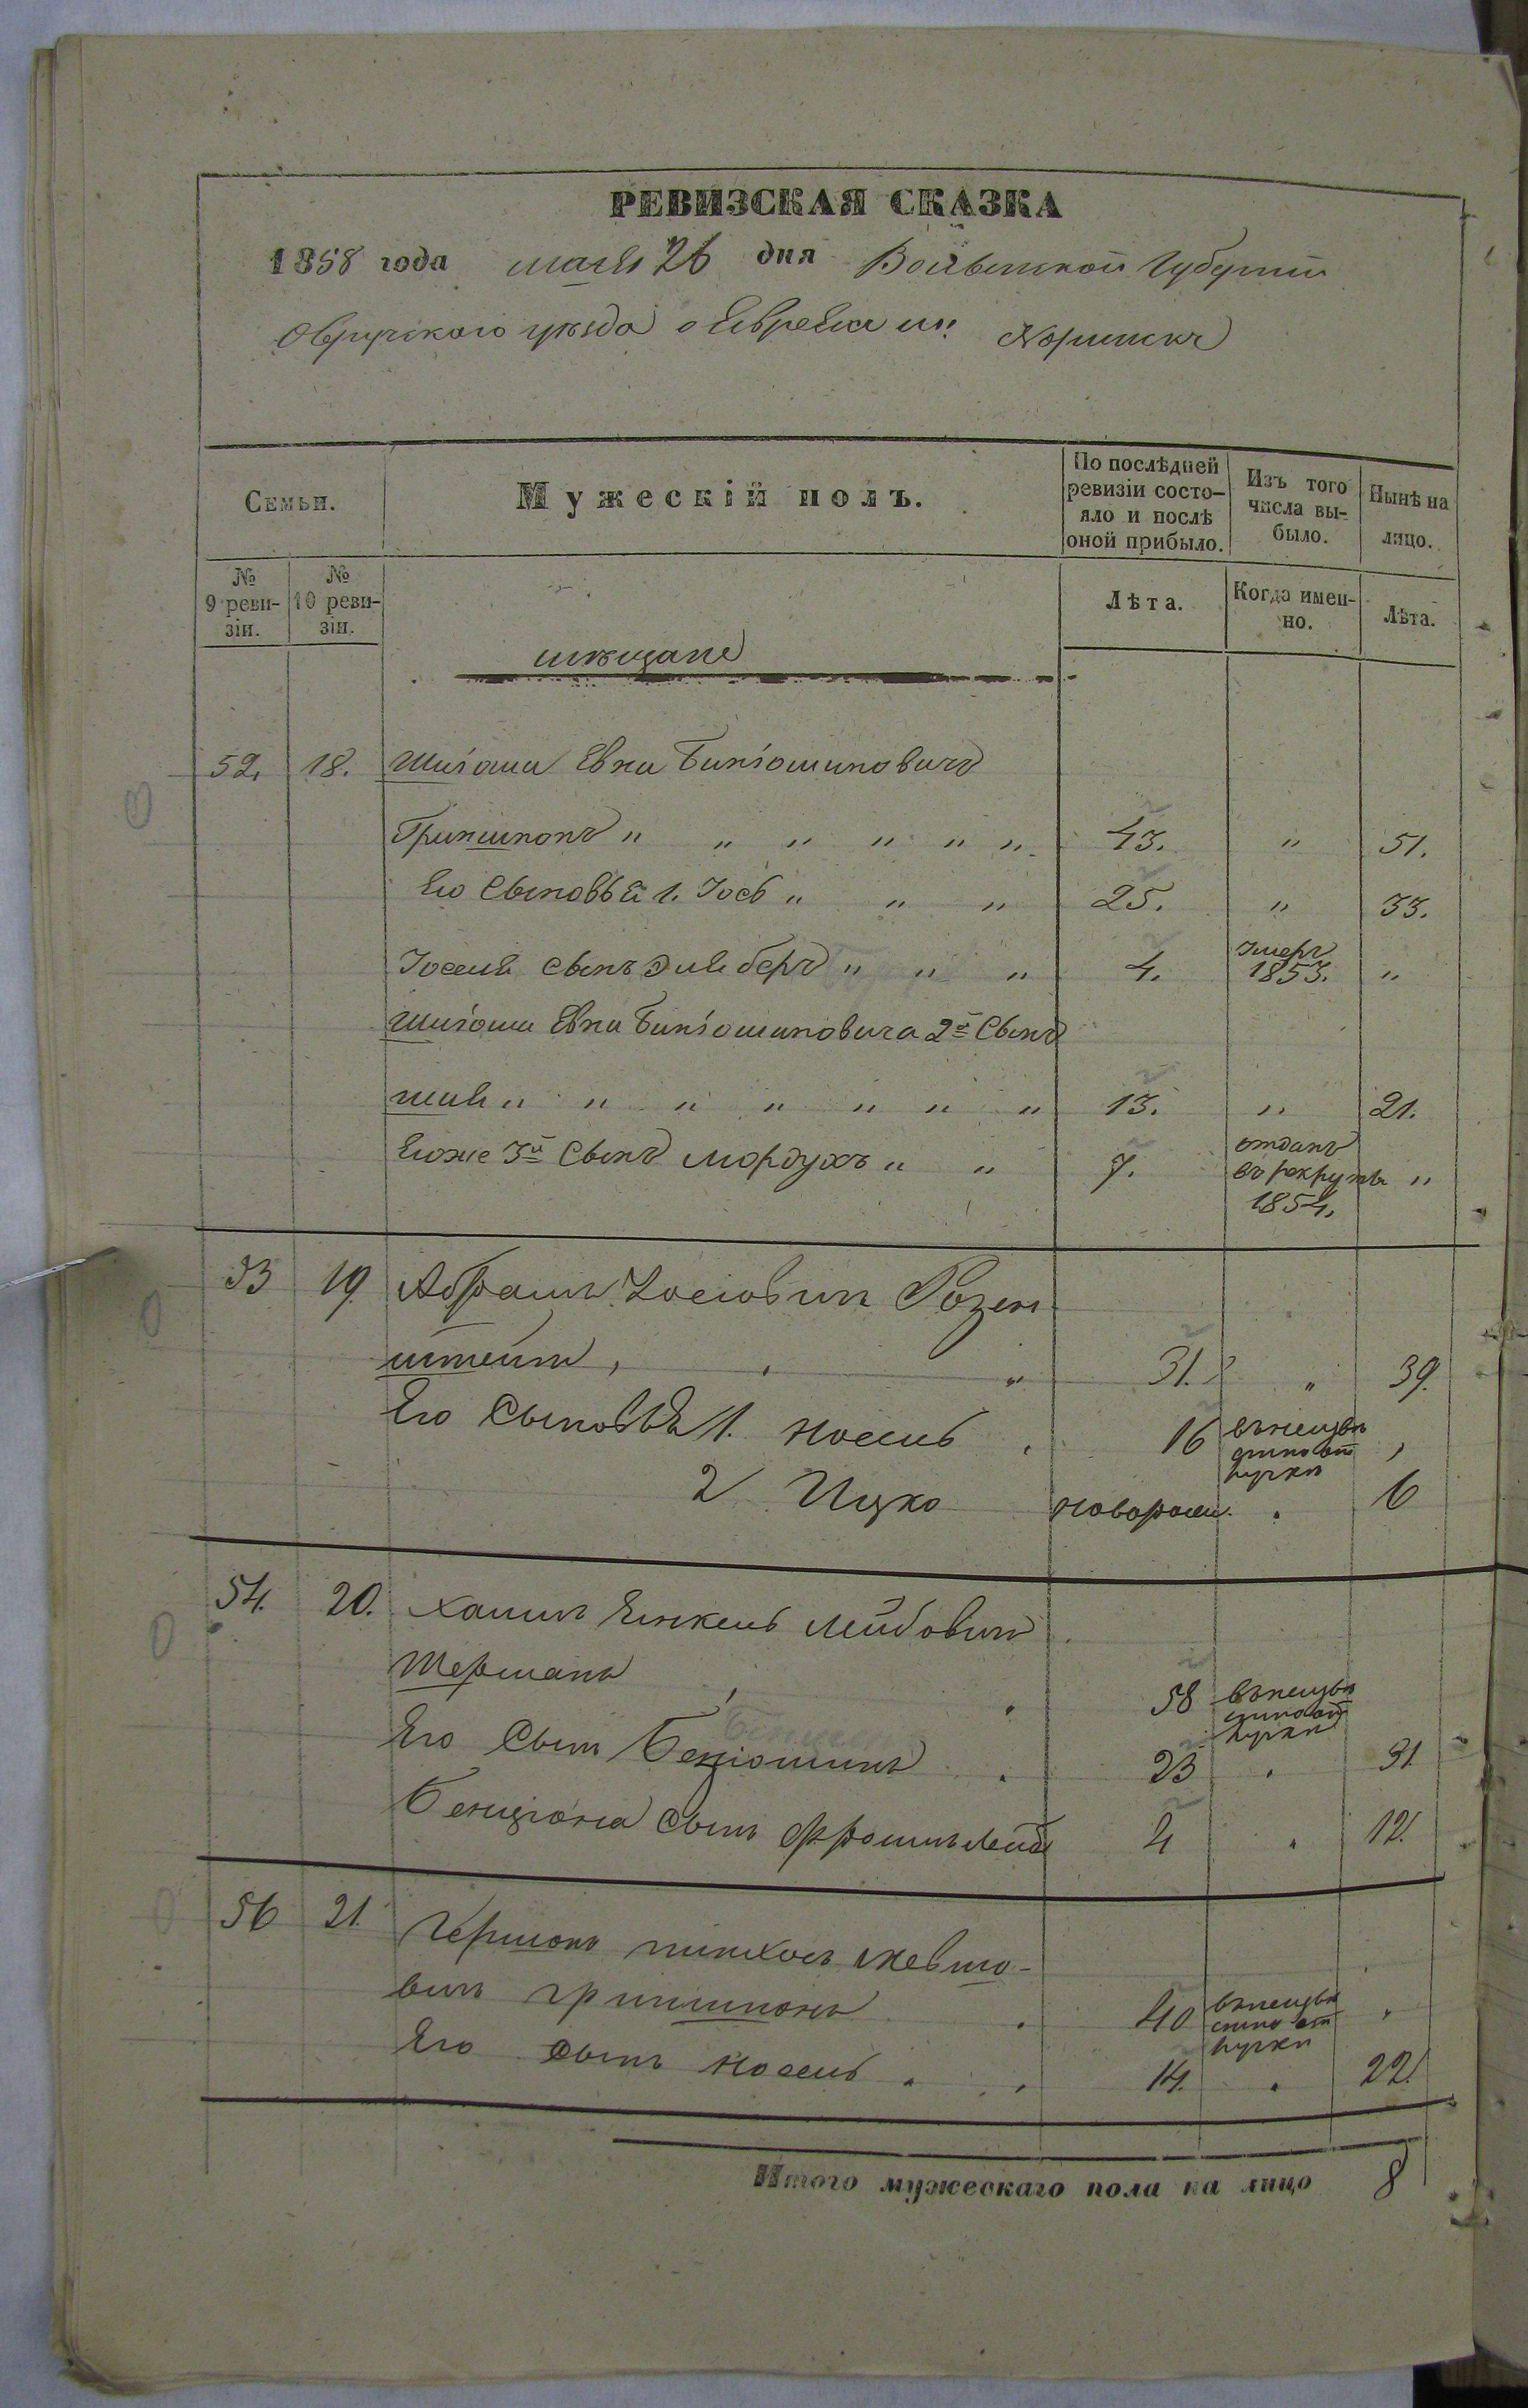 РЕВИЗСКАЯ СКАЗКА
1858 года мая 26 дня Волынской Губерніи
Овручского уезда о Евреяхъ м: Норинскъ
Семьи.
Мужескій полъ.
По послѣдней ревизіи состо-
яло и послѣ
оной прибыло.
Изъ того
числа вы-
было.
Нынѣ на
лицо.
№
9 реви-
зіи.
№
10 реви-
зіи.
Лѣта.
Когда имен-
но.
Лѣта.
мѣщане
52. 18. Евна Биніоминовичъ
Гриншпонъ " " " " " " 43. " 51.
Его Сыновья 1. Іось " " " 25. " 33.
Іоселя сынъ Эля беръ " " " 4. Умеръ 1853. "
Евни Биніоминовича 2й Сынъ
" " " " " " 13. " 21.
Егоже 3й Сынъ Мордухъ " " 7. отданъ въ рекруты 1854. "
53 19. Абрамъ Іосіовичъ Розен
штейнъ , , " 31. " 39.
Его Сыновья 1. Носель 16
2 Ицко новорожд. " 6
54. 20. Хаимъ Янкель Лейбовичъ
Шерманъ 58
Его Сынъ Беніоминъ 23 " 31.
Бенціона Сынъ Фроимъ Лейба 4 " 12.
56 21. Гершонъ Пинхосъ
вичъ Гриншпонъ 40
Его сынъ Носель 14. " 22.
Итого мужескаго пола на лицо 8